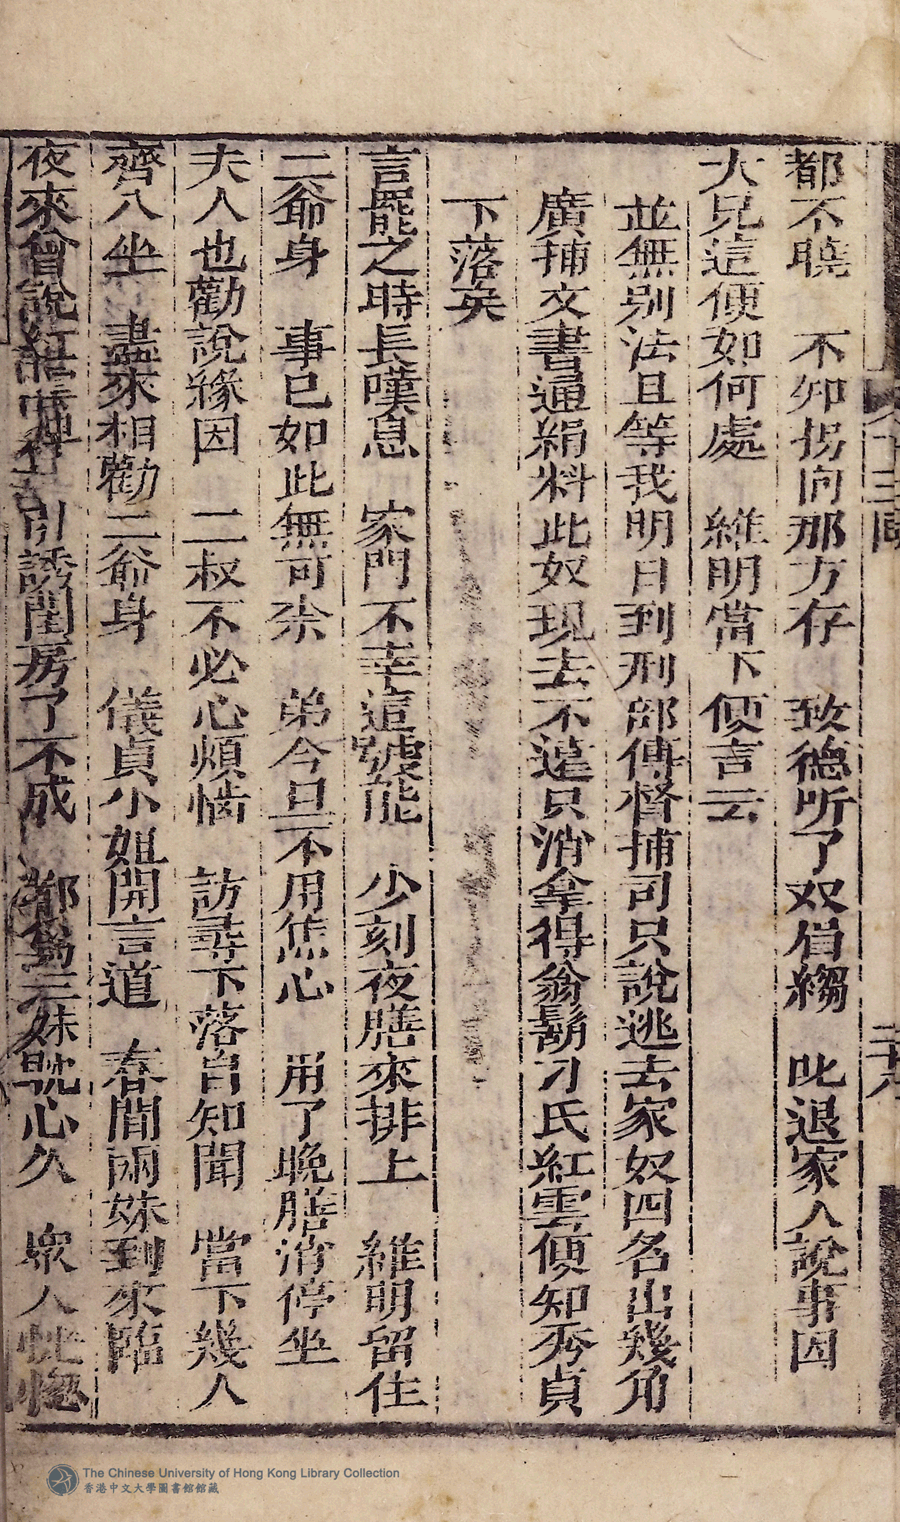 都不曉　不知拐向那方存　致德听了双眉縐　叱退家人說事因
大兄這便如何處　維明當下便言云
並無别法且等我明日到刑部傳督捕司只說逃去家奴四名出幾角
廣捕文書通緝料此奴現去不遠只消拿得翁鬍刁氏紅雲便知秀貞
下落矣
言罷之時長嘆息　家門不幸這號能　少刻夜膳來排上　維明留住
二爺身　事已如此無可奈　弟今旦不用焦心　用了晚膳消停坐
夫人也勸說緣因　二叔不必心煩惱　訪尋下落自知聞　當下幾人
齊八坐　盡來相勸二爺身　儀貞小姐開言道　春間兩妹到來臨
夜來曾說紅　引誘閨房了不成　都為三妹躭心久　衆人
十三囬
二十八
The Chinese University of Hong Kong Library Collection
香港中文大學圖書館館藏